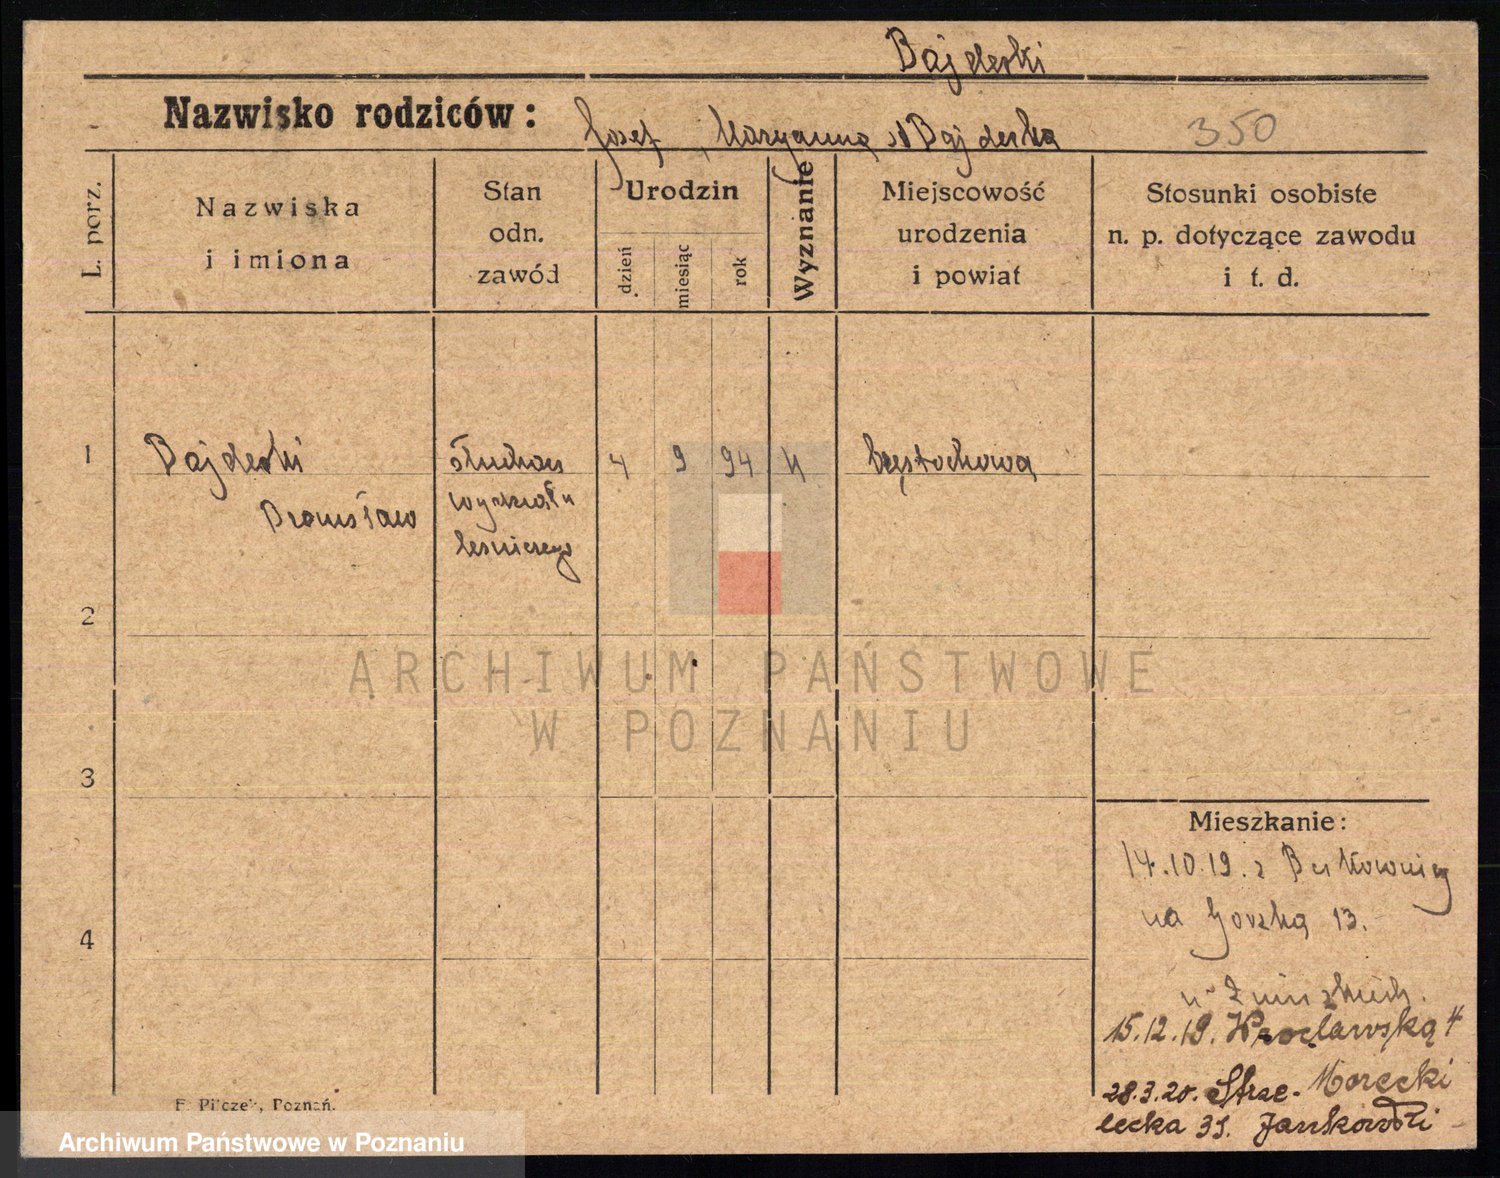 Bajderski
Nazwisko rodziców: Josef, Maryanna Bajderska 350
L. porz.
Nazwiska
i imiona
Stan
odn.
zawód
Urodzin
dzień
miesiąc
rok
Wyznanie
Miejscowość
urodzenia
i powiat
Stosunki osobiste
n. p. dotyczące zawodu
i t. d.
1 Bajderski słuchacz 4 9 94 Częstochowa
Bronisław wydziału
leśniczego
2
ARCHIWUM PAŃSTWOWE
W POZNANIU
3
4
Mieszkanie:
14.10.19. z
na Gorską 13.
u
15.12.19. Wrocławską 4
Morecki
28.3.20. Strze-
lecka 31. Jankowski
F. Pilczek, Poznań.
Archiwum Państwowe w Poznaniu